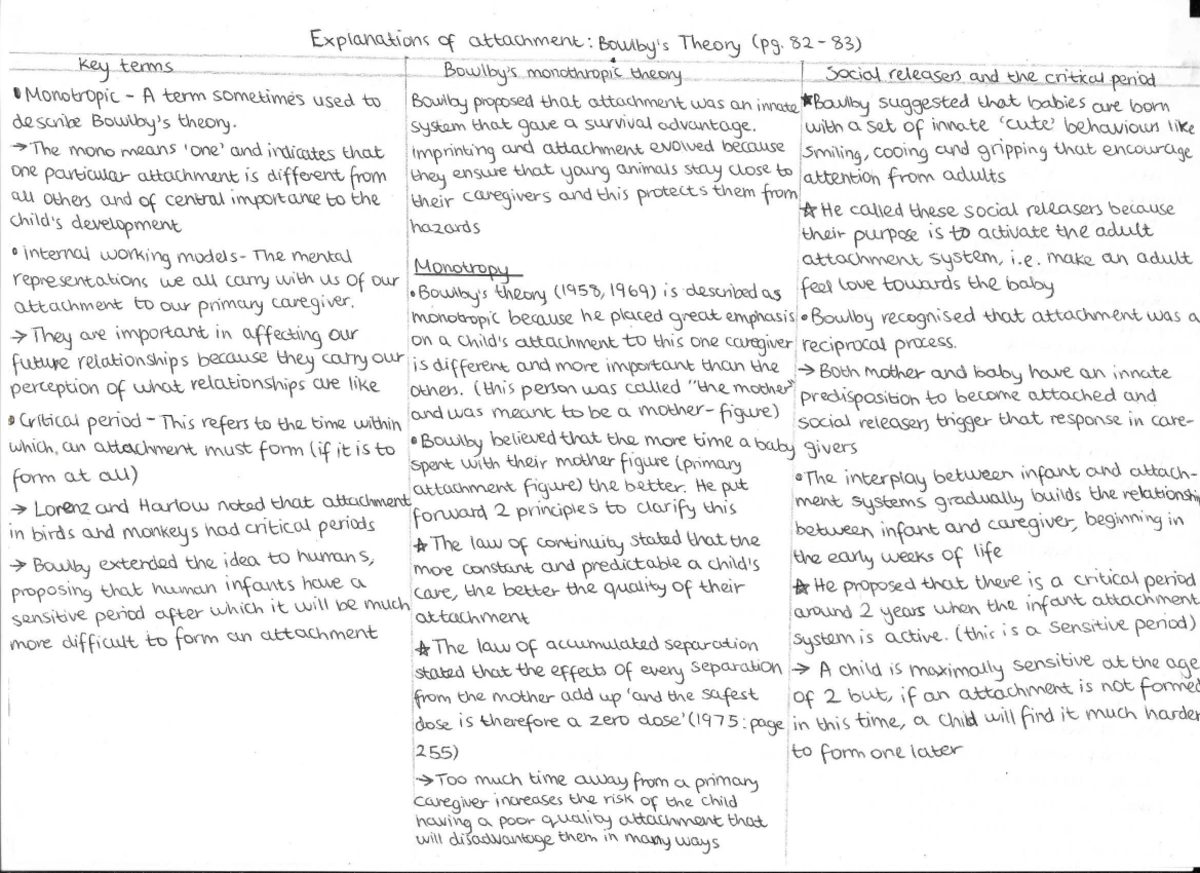 Explanations of attachment: Bowlby's Theory (pg. 82-83)
Key terms
• Monotropic - A term sometimes used to
describe Bowlby's theory.
→ The mono means 'one' and indicates that
one particular attachment is different from
all others and of central importance to the
child's development
• internal working models - The mental
representations we all carry with us of our
attachment to our primary caregiver.
→ They are important in affecting our
future relationships because they carry our
perception of what relationships are like
• Critical period - This refers to the time within
which, an attachment must form (if it is to
form at all)
→ Lorenz and Harlow noted that attachment
in birds and monkeys had critical periods
→ Bowlby extended the idea to humans,
proposing that human infants have a
sensitive period after which it will be much
more difficult to form an attachment
Bowlby's monothropic theory
Bowlby proposed that attachment was an innate
system that gave a survival advantage.
imprinting and attachment evolved because
they ensure that young animals stay close to
their caregivers and this protects them from
hazards
Monotropy
• Bowlby's theory (1958, 1969) is described as
monotropic because he placed great emphasis
on a child's attachment to this one caregiver
is different and more important than the
others. (this person was called "the mother"
and was meant to be a mother-figure)
• Bowlby believed that the more time a baby
spent with their mother figure (primary
attachment figure) the better. He put
forward 2 principles to clarify this
☆ The law of continuity stated that the
more constant and predictable a child's
care, the better the quality of their
attachment
☆ The law of accumulated separation
stated that the effects of every separation
from the mother add up 'and the safest
dose is therefore a zero dose' (1975: page
255)
→ Too much time away from a primary
caregiver increases the risk of the child
having a poor quality attachment that
will disadvantage them in many ways
Social releasers and the critical period
★ Bowlby suggested that babies are born
with a set of innate 'cute' behaviours like
smiling, cooing and gripping that encourage
attention from adults
☆ He called these social releasers because
their purpose is to activate the adult
attachment system, i.e. make an adult
feel love towards the baby
• Bowlby recognised that attachment was a
reciprocal process.
→ Both mother and baby have an innate
predisposition to become attached and
social releasers trigger that response in care-
givers
• The interplay between infant and attach-
ment systems gradually builds the relationship
between infant and caregiver, beginning in
the early weeks of life
☆ He proposed that there is a critical period
around 2 years when the infant attachment
system is active. (this is a sensitive period)
→ A child is maximally sensitive at the age
of 2 but, if an attachment is not formed
in this time, a child will find it much harder
to form one later